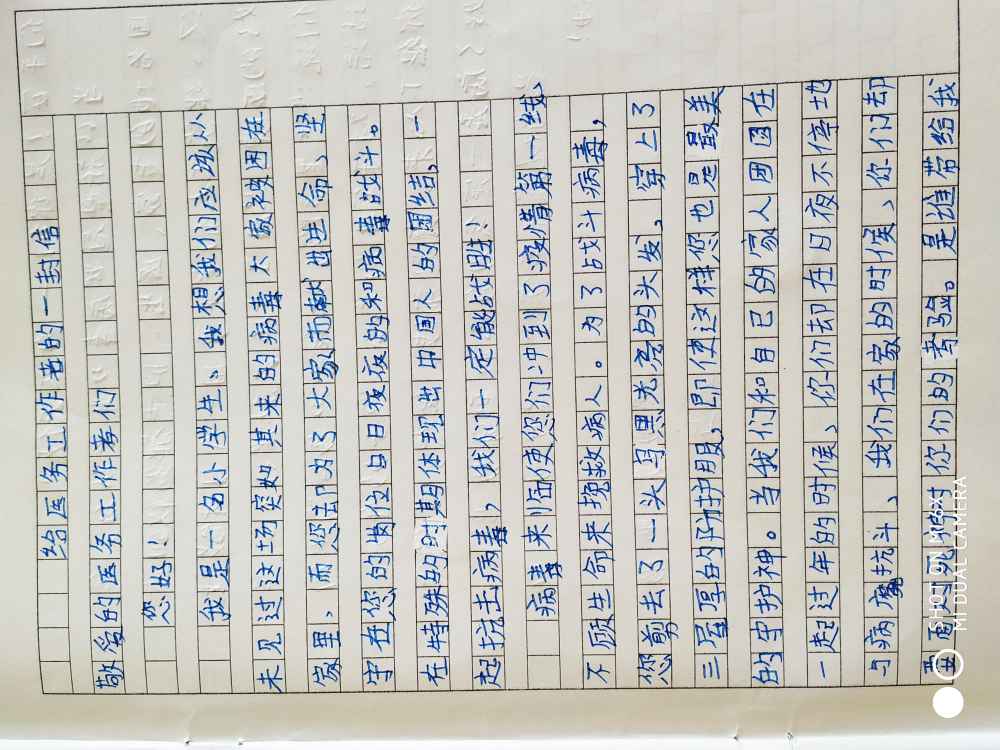 给医务工作者的一封信
敬爱的医务工作者们
您好!
我是一名小学生。我想我们应该从
未见过这场突如其来的病毒大家被困在
家里,而您却为了大家而献出生命、坚
守在您的岗位上日日夜夜的和病毒战斗。
在特殊的时期体现出中国人的团结,一
起抗击病毒,我们一定能战胜!
病毒来临使您们冲到了疫情第一线、
不顾生命来挽救病人。为了战斗病毒,
您剪去了一头乌黑光亮的头发、穿上了
三层厚的防护服,即使这样您也是最美
的守护神。当我们和自己的家人团圆在
一起过年的时候、你们却在日夜不停地
与病魔抗斗、我们在家的时候、你们却
要面对死神对你们的考验。是谁带给我
SHOT ON MI 6X
MI DUAL CAMERA